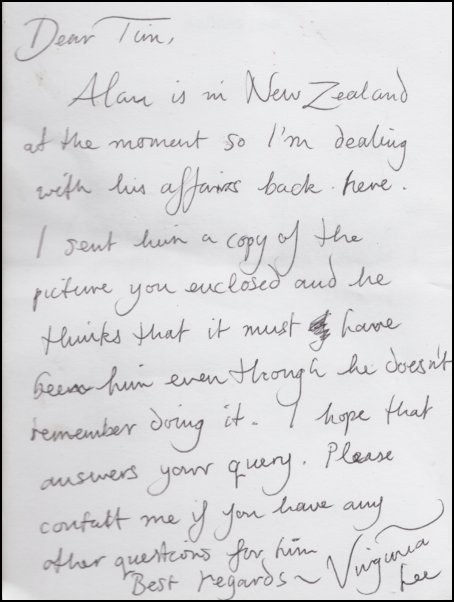 Dear Tim,
Alan is in New Zealand
at the moment so I'm dealing
with his affairs back here.
I sent him a copy of the
picture you enclosed and he
thinks that it must have
been him even though he doesn't
remember doing it. I hope that
answers your query. Please
contact me if you have any
other questions for him
Best regards ~ Virginia
Lee